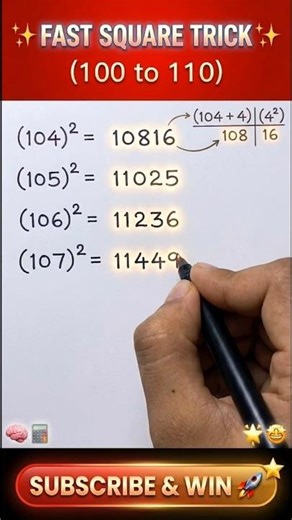 ✨FAST SQUARE TRICK✨
(100 to 110)
(104)² = 10816
(104 + 4) | (4²)
108 | 16
(105)² = 11025
(106)² = 11236
(107)² = 11449
SUBSCRIBE & WIN 🚀